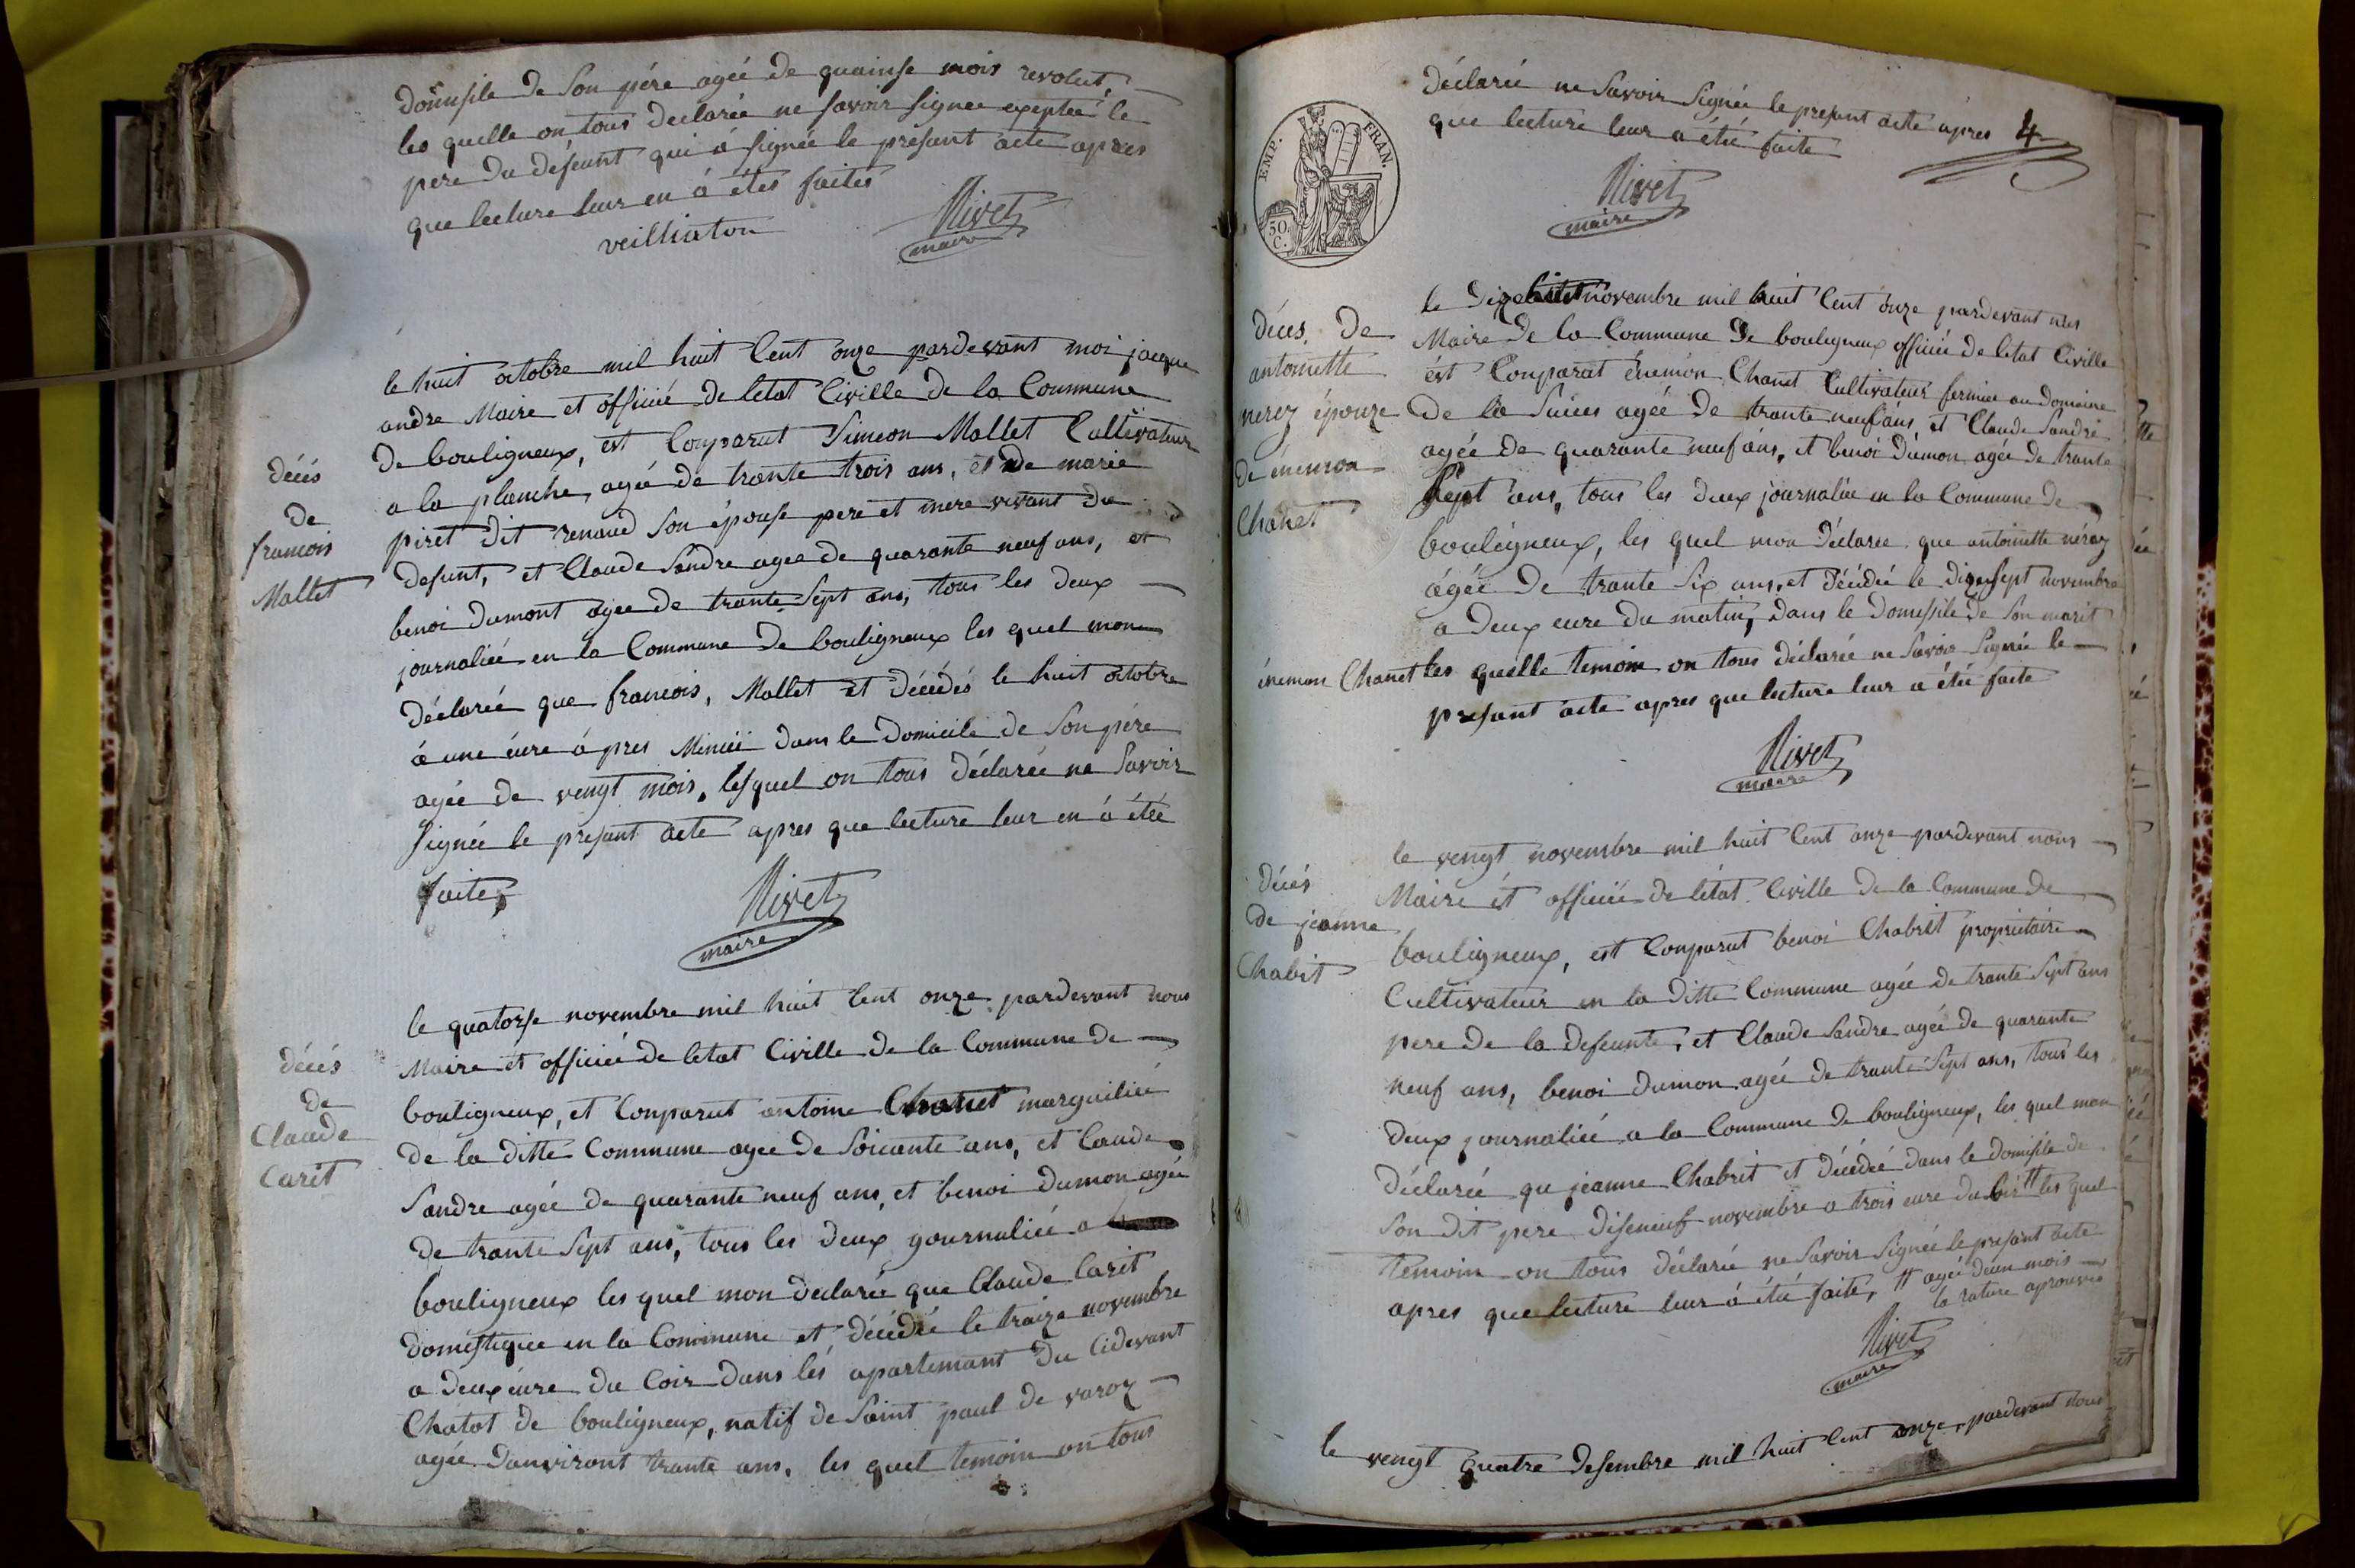 domisile de son pére agée de quainse mois revolut
les quelle on tous declarée ne savoir signee exeptée le
pere du défeunt qui á signée le présent acte apres
que lecture leur en á étes faites
veilliaton
Rivet
maire
le huit octobre mil huit Cent onze pardevant moi jacque
andre Maire et officié de letat Civille de la Commune
de bouligneux, est Conparut Simeon Mallet Cultivateur
décés
de
francois
Mallet
a la planche, agée de trante trois ans, et de marie
piret dit renaud Son épouse pere et mere vivant du
defunt, et Claude Sandre agee de quarante neuf ans, et
benoi dumont agee de trante Sept ans, tous les deux
journaliée en la Commune de bouligneux les quel mon
déclarée que francois, Mallet et décédés le huit octobre
á une éure ápres Mimiéi dans le Domicile de Son pére
agée de vengt mois, lesquel on tous déclarée ne Savoir
signée le presant acte apres que lecture leur en á étée
faite,
Rivet
maire
le quatorse novembre mil huit Cent onze pardevant nous
Maire et officiée de letat Civille de la Commune de
décés
de
Claude
Carit
bouligneux, et Conparut antoine Chanet marguiliée
de la ditte Commune agee de Soicante ans, et Claude
Sandre agée de quarante neuf ans, et benoi dumon agée
de trante Sept ans, tous les deux gournaliée a
bouligneux les quel mon declarée que Claude Carit
domestiquee en la Commune et décédée le traize novembre
a deux eure du Coir dans lés apartemant du Cidevant
Chatot de bouligneux, natif de Saint paul de varoz
agée danviront trante ans, les quel temoin on tous
déclarée ne Savoir Signée le presant acte apres
que lecture leur a étée faite
4
EMP. FRAN.
50.
C.
Rivet
maire
le dizehuit novembre mil huit Cent onze pardevant nous
décés de
antoinette
nerez épouze
de énemon
Chanet
Maire de la Commune de bouligneux officiée de letat Civille
ést Conparut énemon Chanet Cultivateur fermiee au domaine
de la Suices agée de trante neuf ans, et Claude Sandre
agée de quarante neuf ans, et benoi dumon agée de trante
Sept ans, tous les deux journaliée en la Commune de
bouligneux, les quel mon déclarée que antoinette néraz
ágée de trante Six ans, et décédée le dizesept novembre
a deux eure du matin, dans le domissile de Son marit
énemon Chanet les quelle temoin on tous déclarée ne Savoir Signée le
presant acte apres que lecture leur a étée faite
Rivet
maire
le vengt novembre mil huit Cent onze pardevant nous
décés
de jeanne
Chabit
Maire ét officiée de létat Civille de la Commune de
bouligneux, est Conparut benoi Chabrit propriétaire
Cultivateur en la ditte Commune agée de trante Sept ans
pere de la defeunte, et Claude Sandre agée de quarante
neuf ans, benoi dumon agée de trante Sept ans, tous les
deux journaliée a la Commune de bouligneux, les quel mon
déclarée que jeanne Chabrit et décédée dans le domisile de
Son dit pere diseneuf novembre a trois eure du Soir # les quel
temoin on tous déclarée ne Savoir Signée le presant acte
apres que lecture leur á étée faite, # agée deun mois
la rature aprouvée
Rivet
maire
le vengt quatre desembre mil huit Cent onze, pardevant nous